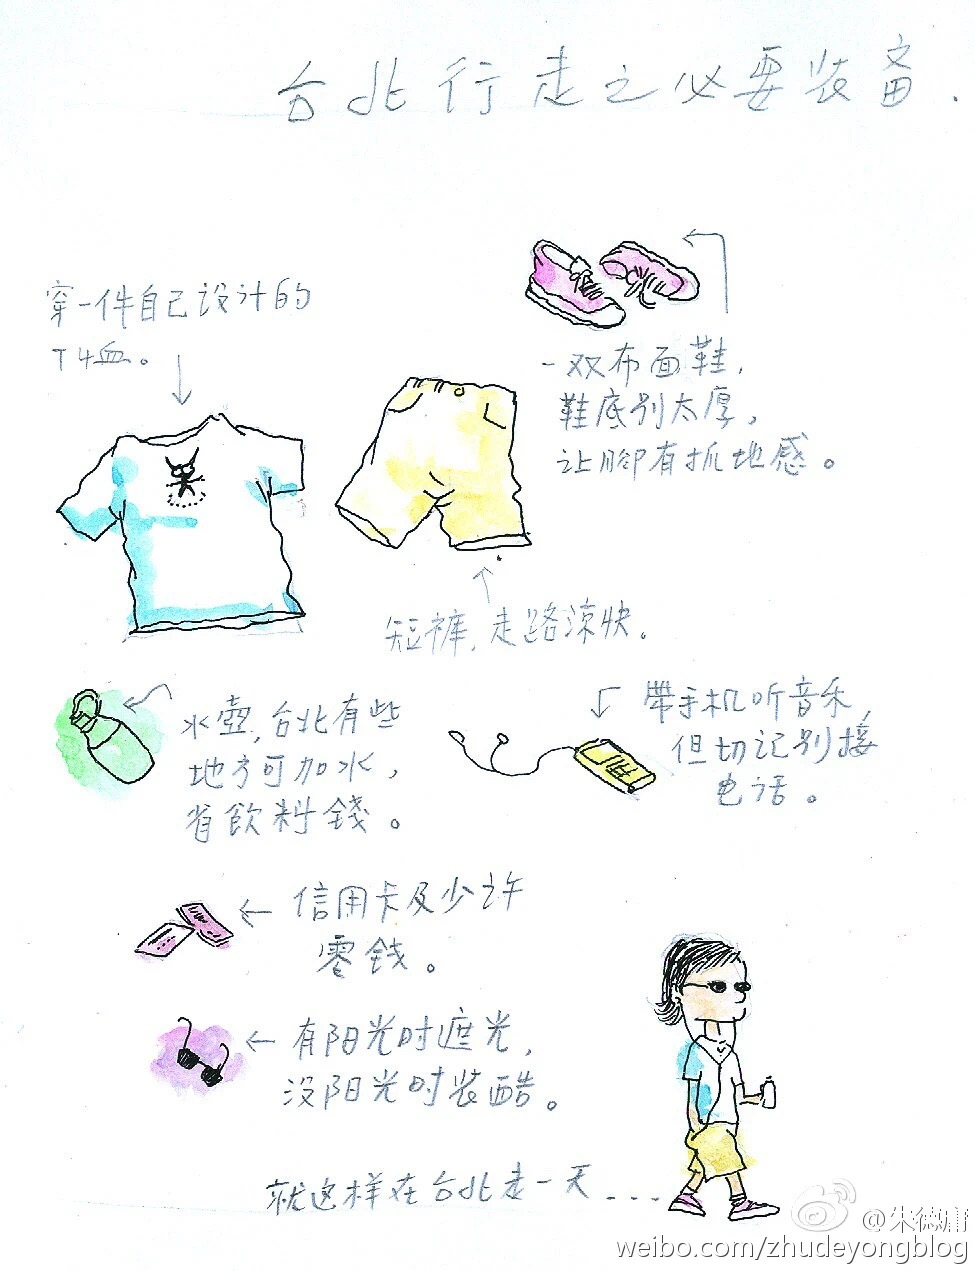 台北行走之必要装备.
穿一件自己设计的
T血。
一双布面鞋,
鞋底别太厚,
让脚有抓地感。
短裤,走路凉快.
水壶,台北有些
地方可加水,
省飲料錢。
帶手机听音乐,
但切记别接
电话。
信用卡及少许
零钱。
有阳光时遮光,
没阳光时装酷。
就这样在台北走一天....
@朱德庸
weibo.com/zhudeyongblog